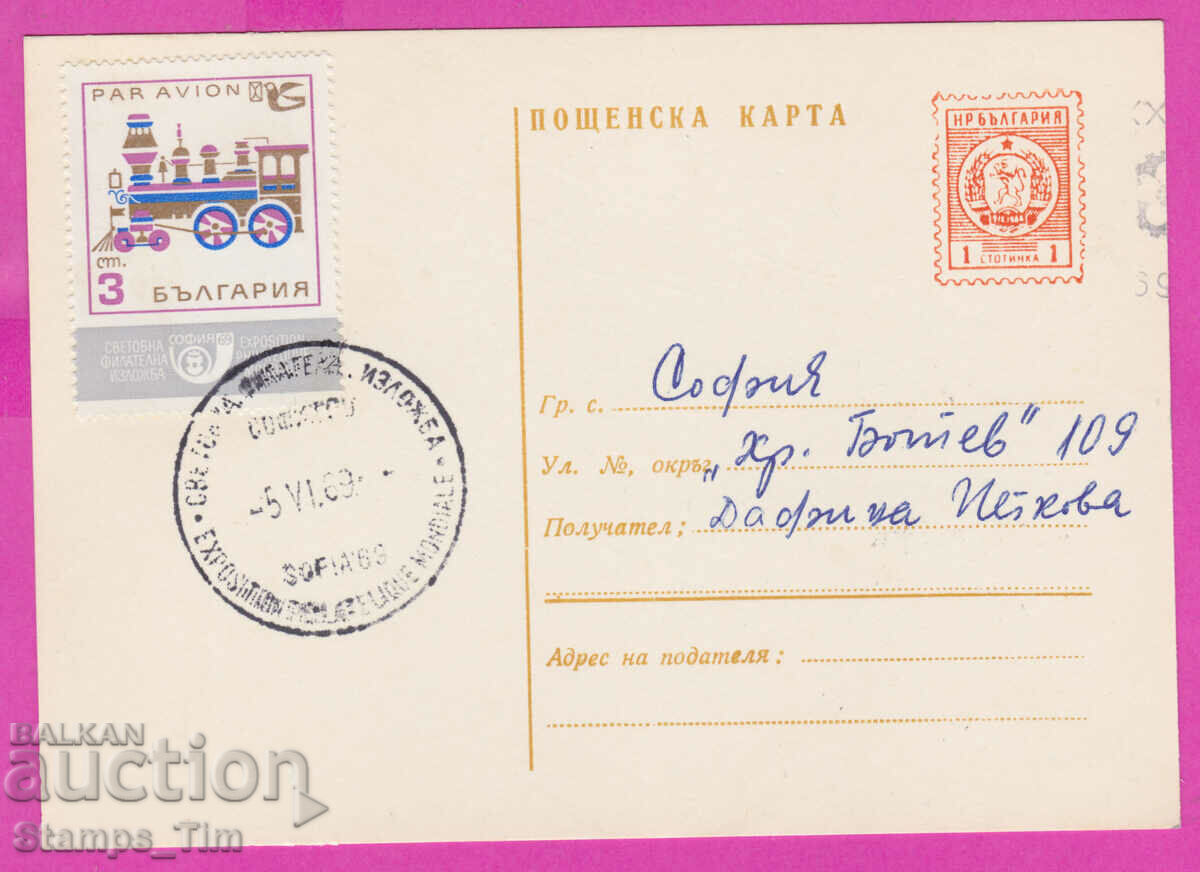 PAR AVION
ст.
3 БЪЛГАРИЯ
СВЕТОВНА
ФИЛАТЕЛНА
ИЗЛОЖБА
СОФИЯ 69
EXPOSITION
ИЗЛОЖБА
-5.VI.69.-
SOFIA'69
EXPOSITION PHILATELIQUE MONDIALE
ПОЩЕНСКА КАРТА
НР БЪЛГАРИЯ
1 СТОТИНКА 1
69
Гр. с. София
Ул. №, окръг „Хр. Ботев" 109
Получател; Дафинка Петкова
Адрес на подателя:
BALKAN
auction
Stamps_Tim